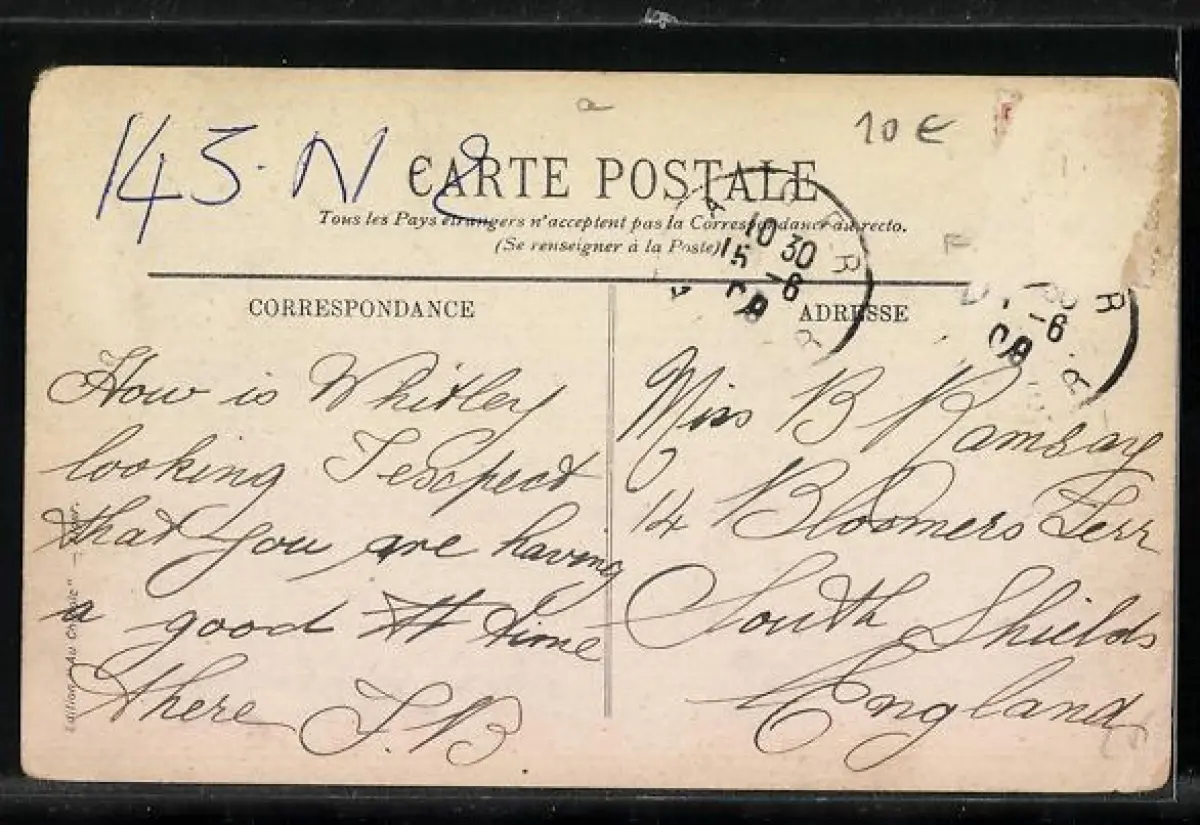 10 €
143-N 8
CARTE POSTALE
Tous les Pays étrangers n'acceptent pas la Correspondance au recto.
(Se renseigner à la Poste)
10 30
15 -6
-6
CORRESPONDANCE
ADRESSE
How is Whitley
looking I escpect
that you are having
a good time
there J.B
Miss B Ramsay
14 Bloomers Terr
South Shields
England
Edition "Au